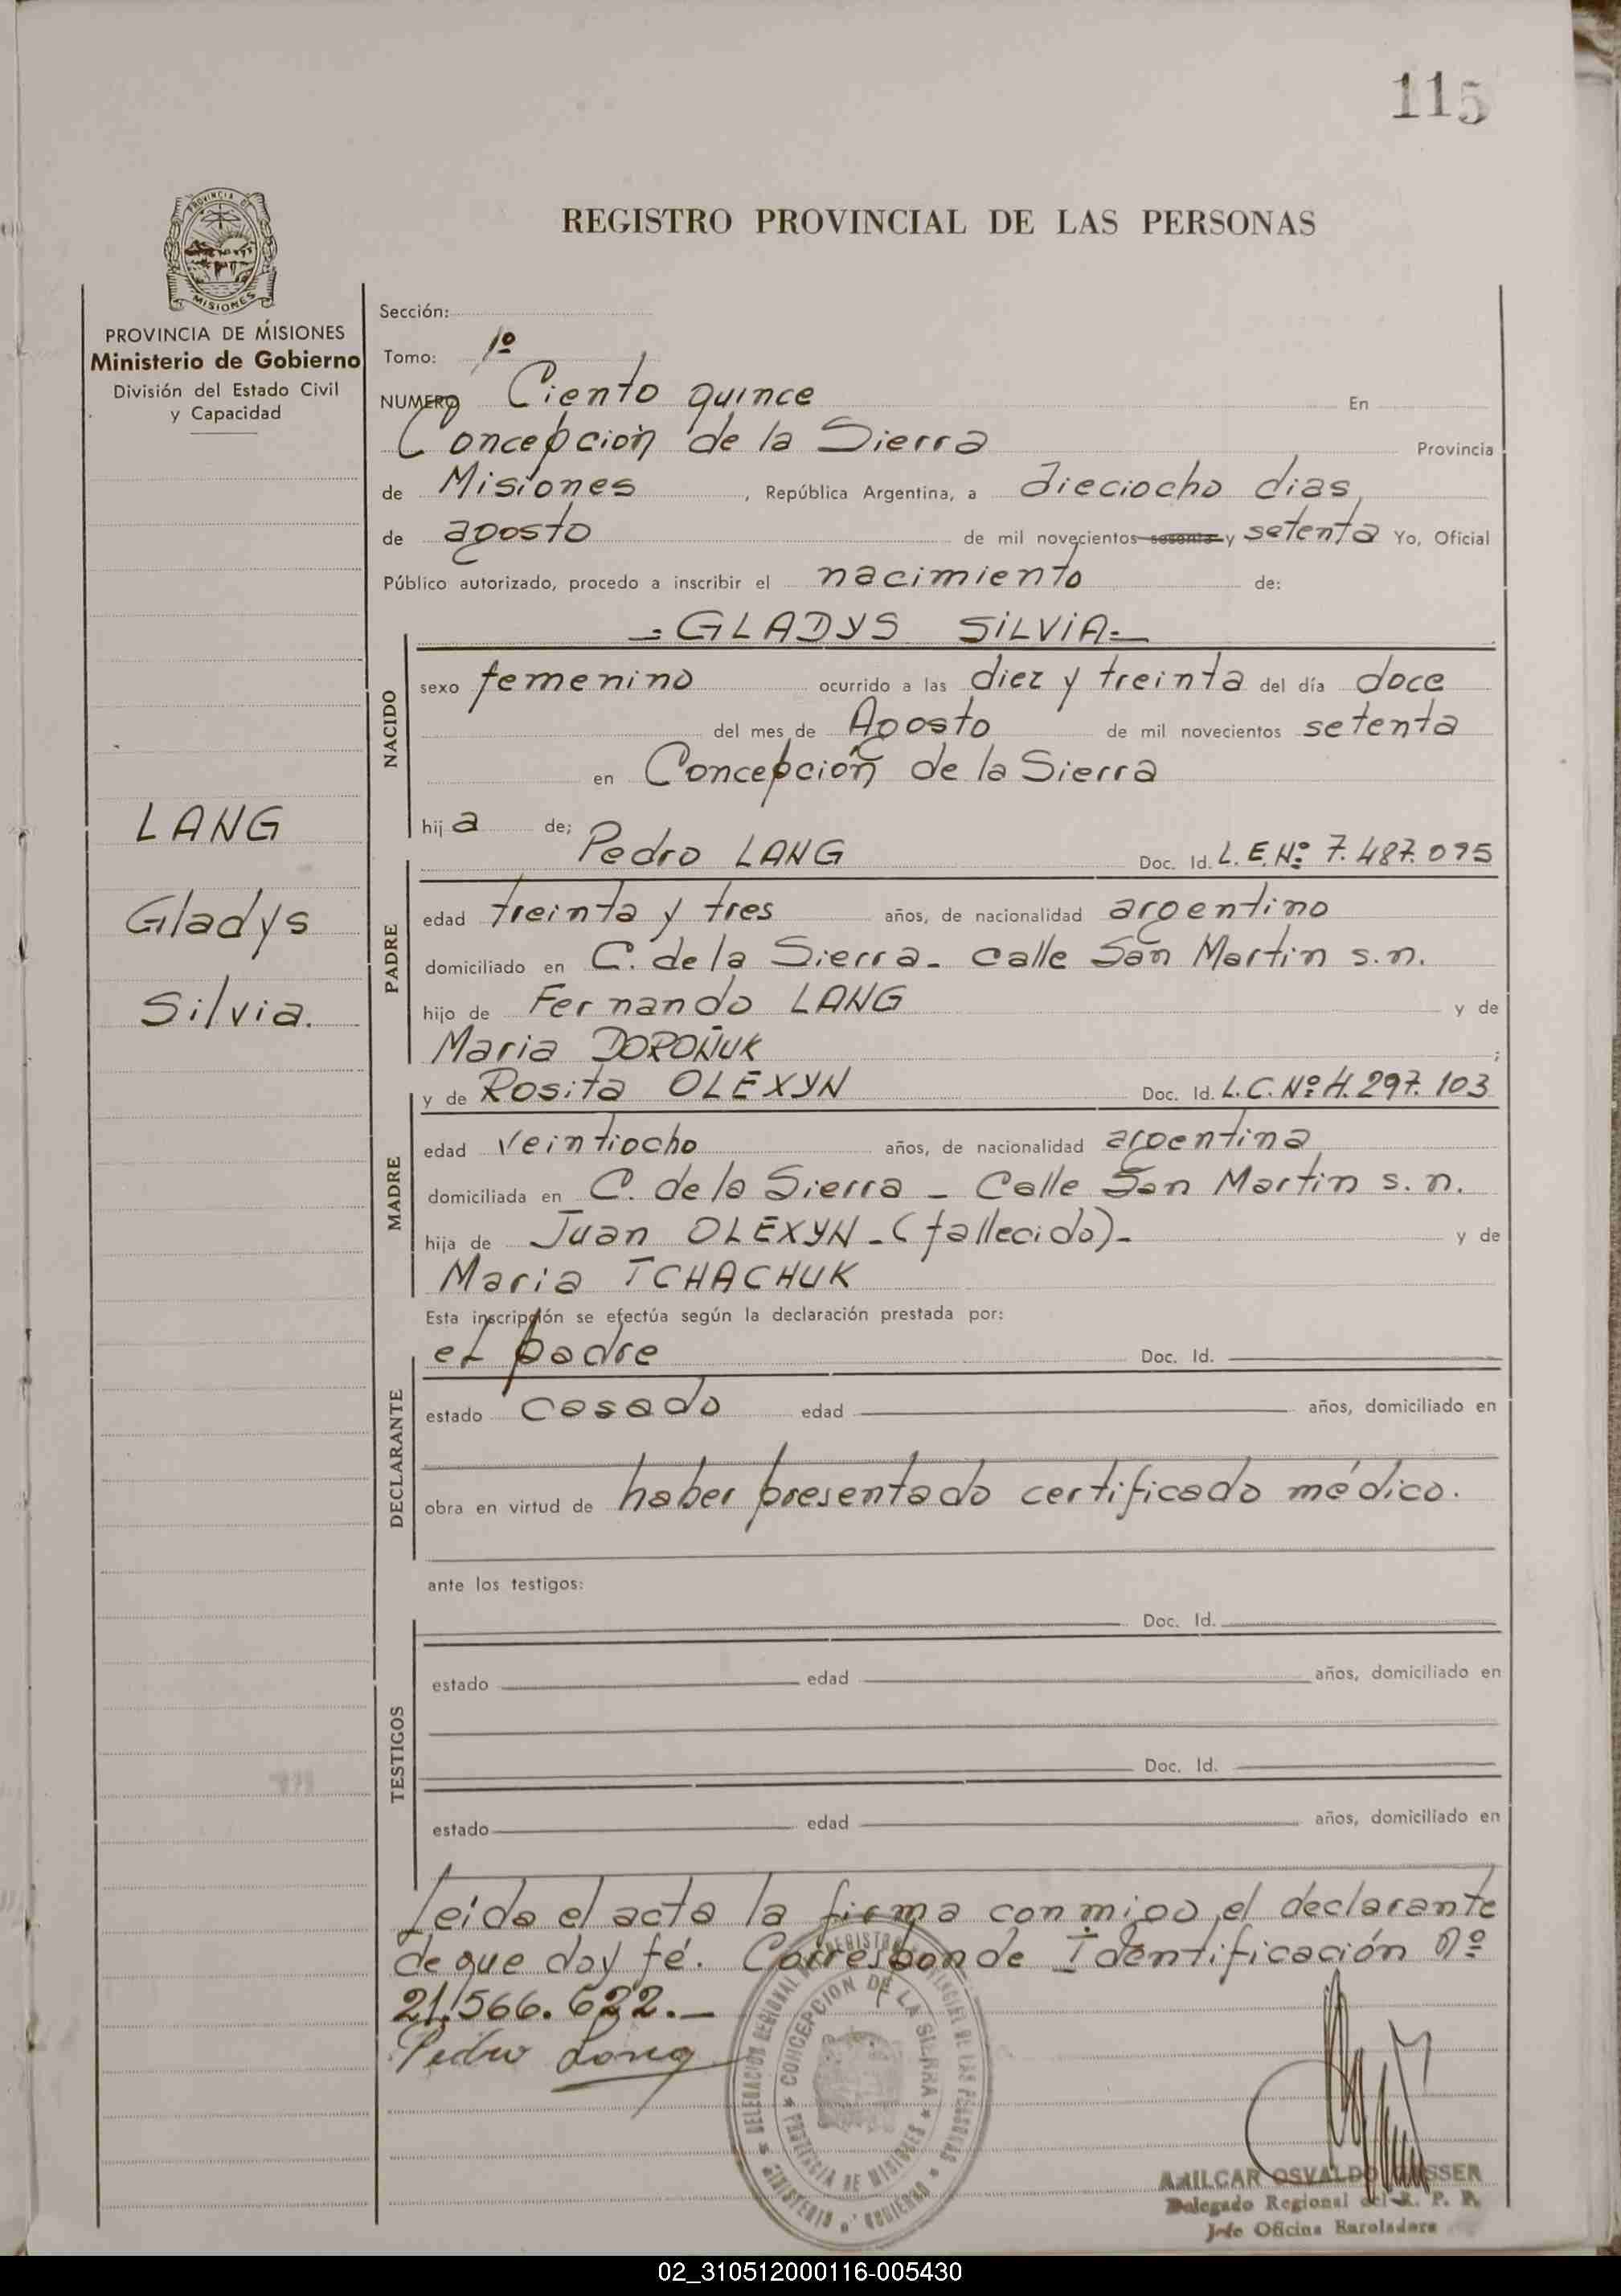 115
REGISTRO PROVINCIAL DE LAS PERSONAS
PROVINCIA DE MISIONES
MISIONES
PROVINCIA DE MISIONES
Ministerio de Gobierno
División del Estado Civil
y Capacidad
LANG
Gladys
Silvia.
Sección:
Tomo: 1º
NUMERO Ciento quince En
Concepción de la Sierra Provincia
de Misiones , República Argentina, a dieciocho dias
de agosto de mil novecientos sesenta y setenta Yo, Oficial
Público autorizado, procedo a inscribir el nacimiento de:
-GLADYS SILVIA-
NACIDO
sexo femenino ocurrido a las diez y treinta del día doce
del mes de Agosto de mil novecientos setenta
en Concepción de la Sierra
hij a de;
Pedro LANG Doc. Id. L.E.Nº 7.487.095
PADRE
edad treinta y tres años, de nacionalidad argentino
domiciliado en C. de la Sierra- calle San Martin s.n.
hijo de Fernando LANG y de
Maria DOROÑUK ;
y de Rosita OLEXYN Doc. Id. L.C.Nº 4.297.103
MADRE
edad veintiocho años, de nacionalidad argentina
domiciliada en C. de la Sierra - Calle San Martin s.n.
hija de Juan OLEXYN-(fallecido)- y de
Maria TCHACHUK
Esta inscripción se efectúa según la declaración prestada por:
el padre Doc. Id.
DECLARANTE
estado casado edad años, domiciliado en
obra en virtud de haber presentado certificado médico.
ante los testigos:
Doc. Id.
TESTIGOS
estado edad años, domiciliado en
Doc. Id.
estado edad años, domiciliado en
Leida el acta la firma conmigo el declarante
de que doy fé. Corresponde Identificación Nº
21.566.622.-
Pedro Lang
DELEGACION REGIONAL DEL REGISTRO PROVINCIAL DE LAS PERSONAS
CONCEPCION DE LA SIERRA
PROVINCIA DE MISIONES
MINISTERIO DE GOBIERNO
AMILCAR OSVALDO
Delegado Regional del R. P. P.
Jefe Oficina Enroladora
02_310512000116-005430